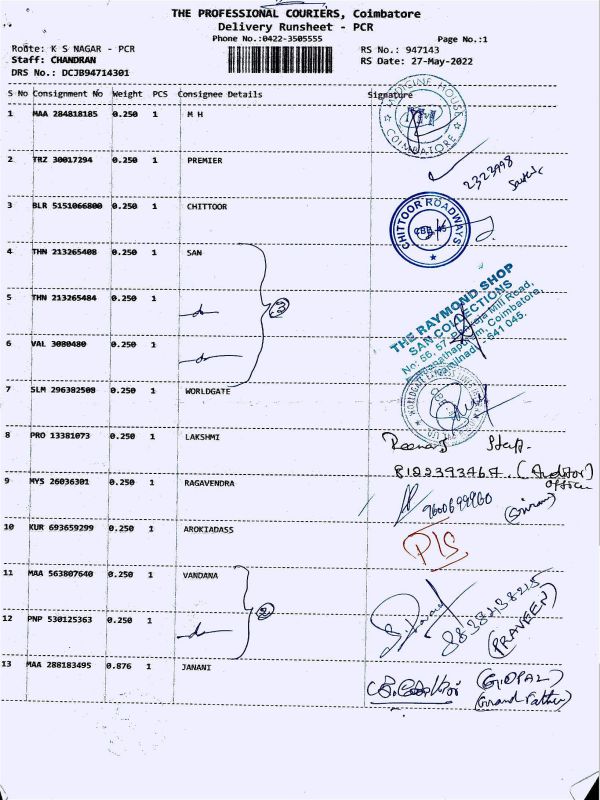 THE PROFESSIONAL COURIERS, Coimbatore
Delivery Runsheet - PCR
Phone No.:0422-3505555
Page No.:1
Route: K S NAGAR - PCR RS No.: 947143
Staff: CHANDRAN RS Date: 27-May-2022
DRS No.: DCJB94714301
S No Consignment No Weight PCS Consignee Details Signature
1 MAA 284818185 0.250 1 M H
MEDICINE HOUSE COIMBATORE
2 TRZ 30017294 0.250 1 PREMIER
2323998
3 BLR 5151066800 0.250 1 CHITTOOR
CHITTOOR ROADWAYS
CBE-45
4 THN 213265408 0.250 1 SAN
5 THN 213265484 0.250 1 do
3
THE RAYMOND SHOP
SAN COLLECTIONS
No: 56, 57, Mill Road,
Coimbatore,
Tamilnadu - 641 045.
6 VAL 3080480 0.250 1 do
7 SLM 296382508 0.250 1 WORLDGATE
WORLDGATE EXPRESS
8 PRO 13381073 0.250 1 LAKSHMI
Staff.
8122393467. (Auditor)
office
9 MYS 26036301 0.250 1 RAGAVENDRA
9600699960
10 KUR 693659299 0.250 1 AROKIADASS
P/S
11 MAA 563807640 0.250 1 VANDANA
2
8838438215
(PRAVEEN)
12 PNP 530125363 0.250 1 do
13 MAA 288183495 0.876 1 JANANI
(GOPAL)
(Grand Father)